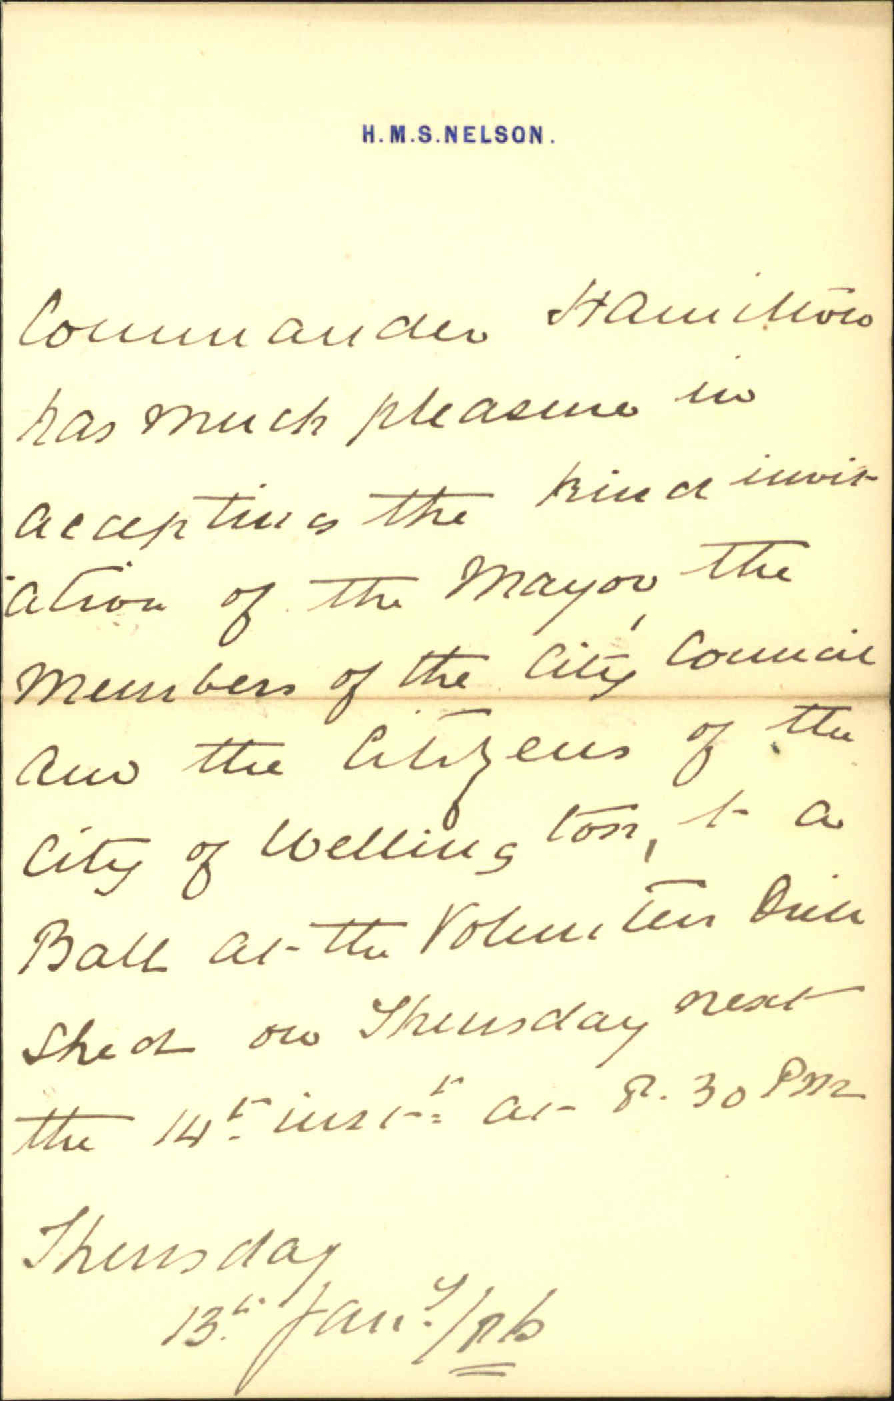 H.M.S. NELSON.
Commander Hamilton
has much pleasure in
accepting the kind invit-
ation of the Mayor, the
Members of the City Council
and the Citizens of the
City of Wellington, to a
Ball at the Volunteer Drill
Shed on Thursday next
the 14th inst: at 8.30 PM
Thursday
13th Jany/86